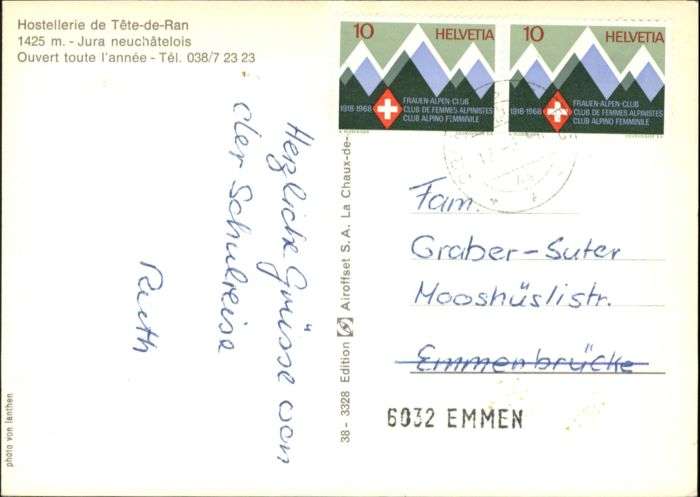 Hostellerie de Tête-de-Ran
1425 m. - Jura neuchâtelois
Ouvert toute l'année - Tél. 038/7 23 23
10 HELVETIA
1918-1968
FRAUEN-ALPEN-CLUB
CLUB DE FEMMES ALPINISTES
CLUB ALPINO FEMMINILE
10 HELVETIA
1918-1968
FRAUEN-ALPEN-CLUB
CLUB DE FEMMES ALPINISTES
CLUB ALPINO FEMMINILE
Herzliche Grüsse von
der Schulreise
Ruth
38 - 3328 Edition Airoffset S.A. La Chaux-de-
Fam.
Graber-Suter
Mooshüslistr.
Emmenbrücke
6032 EMMEN
photo von Ianthen